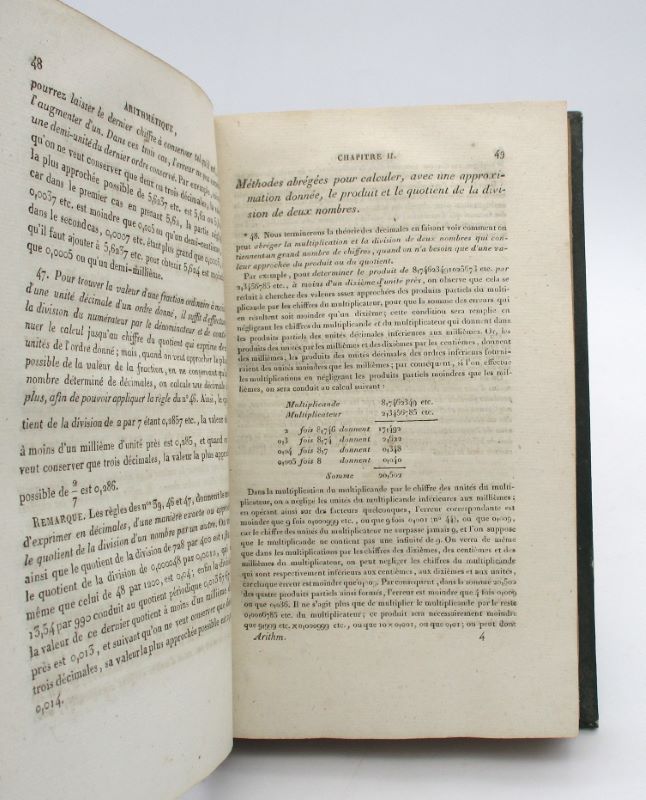 48
ARITHMÉTIQUE,
pourrez laisser le dernier chiffre à conserver tel qu'il est,
l'augmenter d'un. Dans ces trois cas, l'erreur ne
une demi-unité du dernier ordre conservé. Par exemple,
qu'on ne veut conserver que deux ou trois décimales, la
la plus approchée possible de 5,6237 etc. est 5,62 ou
car dans le premier cas en prenant 5,62, la partie
0,0037 etc. est moindre que 0,005 ou qu'un demi-centième
dans le second cas, 0,0007 etc. étant plus grand que 0,0005
qu'il faut ajouter à 5,6237 etc. pour obtenir 5,624 est moindre
que 0,0005 ou qu'un demi-millième.
47. Pour trouver la valeur d'une fraction ordinaire à moins
d'une unité décimale d'un ordre donné, il suffit d'effectuer
la division du numérateur par le dénominateur et de conti-
nuer le calcul jusqu'au chiffre du quotient qui exprime des
unités de l'ordre donné; mais, quand on veut approcher le plus
possible de la valeur de la fraction, en ne conservant qu'un
nombre déterminé de décimales, on calcule une décimale de
plus, afin de pouvoir appliquer la règle du n° 46. Ainsi, le quo-
tient de la division de 2 par 7 étant 0,2857 etc., la valeur
à moins d'un millième d'unité près est 0,285, et quand on
veut conserver que trois décimales, la valeur la plus approchée
possible de 2/7 est 0,286.
REMARQUE. Les règles des nos 39, 46 et 47, donnent le moyen
d'exprimer en décimales, d'une manière exacte ou approchée
le quotient de la division d'un nombre par un autre. On
ainsi que le quotient de la division de 728 par 400 est
le quotient de la division de 0,00048 par 0,0012,
même que celui de 48 par 1200, est 0,04; enfin la division
13,54 par 990 conduit au quotient périodique
la valeur de ce dernier quotient à moins d'un millième
près est 0,013, et suivant qu'on veut conserver
trois décimales, sa valeur la plus approchée possible est
0,014.
CHAPITRE II.
49
Méthodes abrégées pour calculer, avec une approxi-
mation donnée, le produit et le quotient de la divi-
sion de deux nombres.
* 48. Nous terminerons la théorie des décimales en faisant voir comment on
peut abréger la multiplication et la division de deux nombres qui con-
tiennent un grand nombre de chiffres, quand on n'a besoin que d'une va-
leur approchée du produit ou du quotient.
Par exemple, pour déterminer le produit de 8,7462349102567 etc. par
2,3456785 etc., à moins d'un dixième d'unité près, on observe que cela se
réduit à chercher des valeurs assez approchées des produits partiels du multi-
plicande par les chiffres du multiplicateur, pour que la somme des erreurs qui
en résultent soit moindre qu'un dixième; cette condition sera remplie en
négligeant les chiffres du multiplicande et du multiplicateur qui donnent dans
les produits partiels des unités décimales inférieures aux millièmes. Or, les
produits des unités par les millièmes et des dixièmes par les centièmes, donnent
des millièmes; les produits des unités décimales des ordres inférieurs fourni-
raient des unités moindres que les millièmes; par conséquent, si l'on effectue
les multiplications en négligeant les produits partiels moindres que les mil-
lièmes, on sera conduit au calcul suivant:
Multiplicande 8,7462349 etc.
Multiplicateur 2,3456785 etc.
2 fois 8,746 donnent 17,492
0,3 fois 8,74 donnent 2,622
0,04 fois 8,7 donnent 0,348
0,005 fois 8 donnent 0,040
Somme 20,502
Dans la multiplication du multiplicande par le chiffre des unités du multi-
plicateur, on a négligé les unités du multiplicande inférieures aux millièmes;
en opérant ainsi sur des facteurs quelconques, l'erreur correspondante est
moindre que 9 fois 0,000999 etc., ou que 9 fois 0,001 (n° 44), ou que 0,009,
car le chiffre des unités du multiplicateur ne surpasse jamais 9, et l'on suppose
que le multiplicande ne contient pas une infinité de 9. On verra de même
que dans les multiplications par les chiffres des dixièmes, des centièmes et des
millièmes du multiplicateur, on peut négliger les chiffres du multiplicande
qui sont respectivement inférieurs aux centièmes, aux dixièmes et aux unités,
car chaque erreur est moindre que 0,009. Par conséquent, dans la somme 20,502
des quatre produits partiels ainsi formés, l'erreur est moindre que 4 fois 0,009
ou que 0,036. Il ne s'agit plus que de multiplier le multiplicande par le reste
0,0006785 etc. du multiplicateur; ce produit sera nécessairement moindre
que 9,999 etc. × 0,000999 etc., ou que 10 × 0,001, ou que 0,01; on peut donc
Arithm. 4